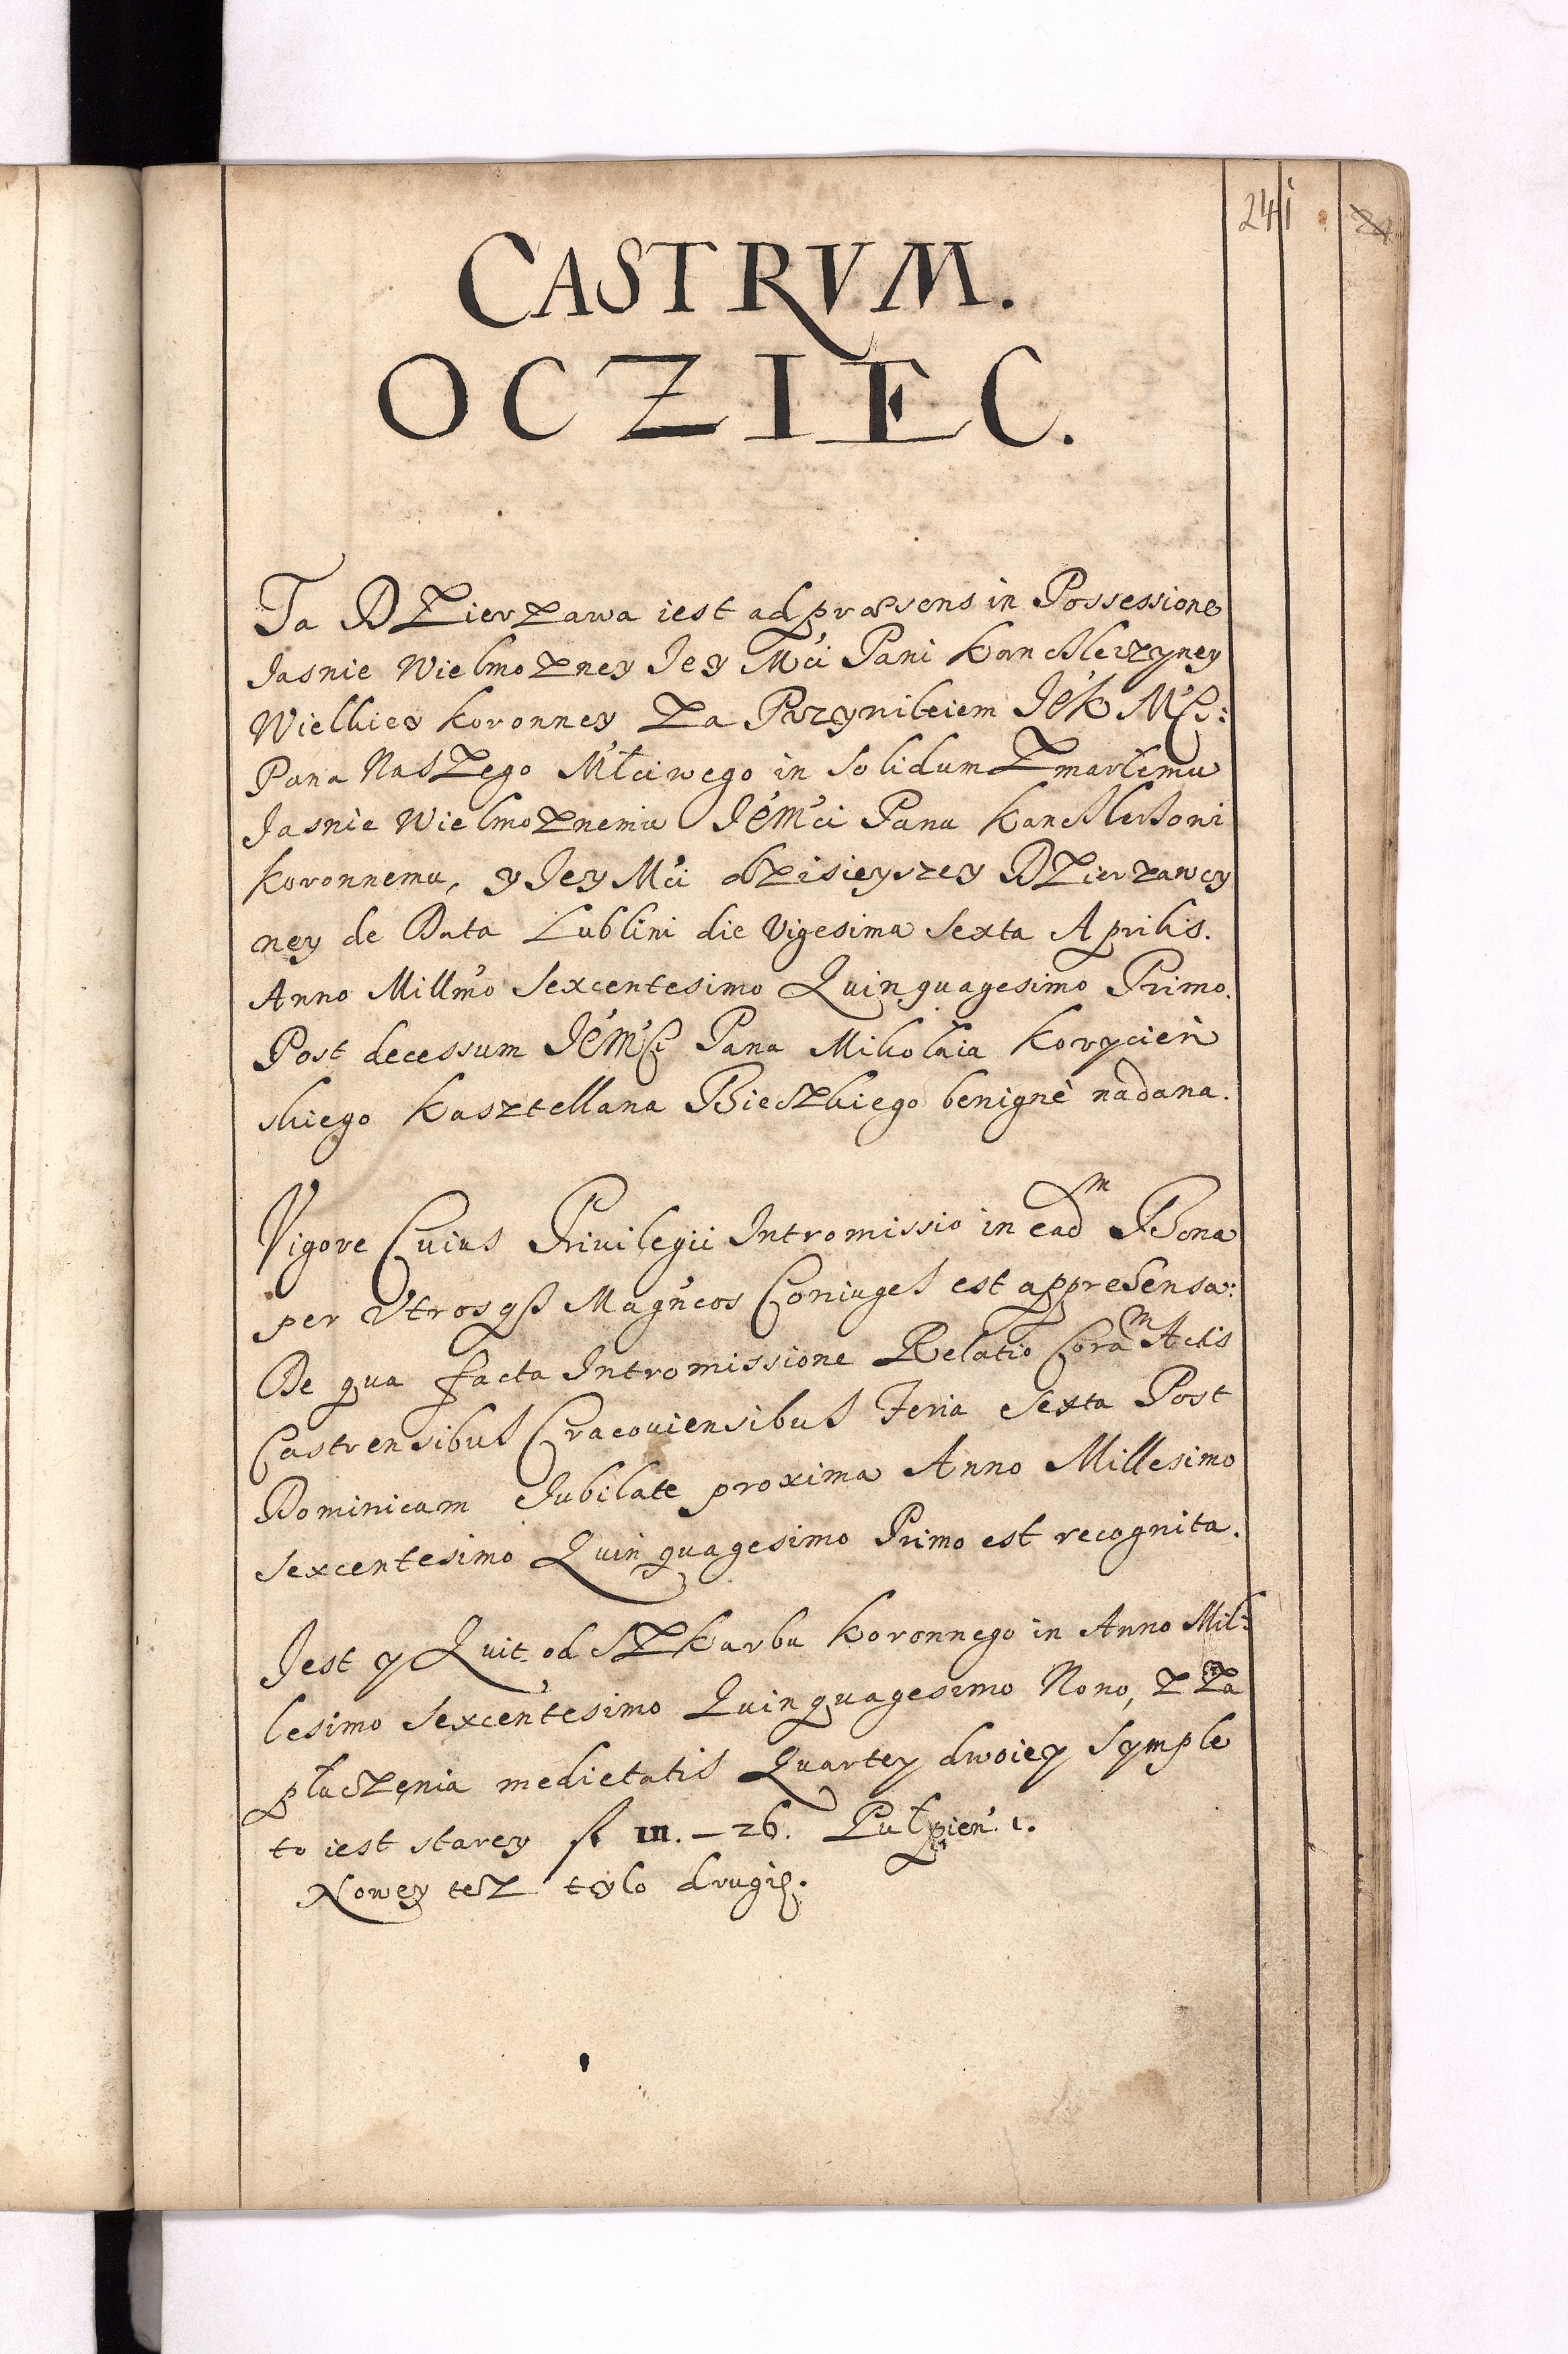 241
CASTRVM.
OCZIEC.
Ta Dzierzawa iest ad præsens in Possessione
Jasnie Wielmozney Jey Mći Pani Kanclerzyney
Wielkiey Koronney za Przywileiem JéK Mśći:
Pana Naszego Młćiwego in Solidum Zmarłemu
Jasnie Wielmoznemu Jémći Panu Kanclerzowi
Koronnemu, y Jey Mći dzisieyszey Dzierzawcy
ney de Data Lublini die Vigesima Sexta Aprilis.
Anno Millmo Sexcentesimo Quinquagesimo Primo.
Post decessum Jémśći Pana Mikołaia Koryciń
skiego Kasztellana Bieczkiego benignè nadana.
Vigore Cuius Priuilegii Intromissio in eadm Bona
per Vtrosq3 Magncos Coniuges est apprehensa:
De qua facta Intromissione Relatio Coram Actis
Castrensibus Cracouiensibus Feria Sexta Post
Dominicam Jubilate proxima Anno Millesimo
Sexcentesimo Quinquagesimo Primo est recognita.
Jest y Quit od Szkarbu Koronnego in Anno Mil:
lesimo Sexcentesimo Quinquagesimo Nono, z Za
płaczęnia medietatis Quartey dwoiey Symple
to iest starey fl III.–26. Pułpień: 1.
Nowey tesz tylo drugię.